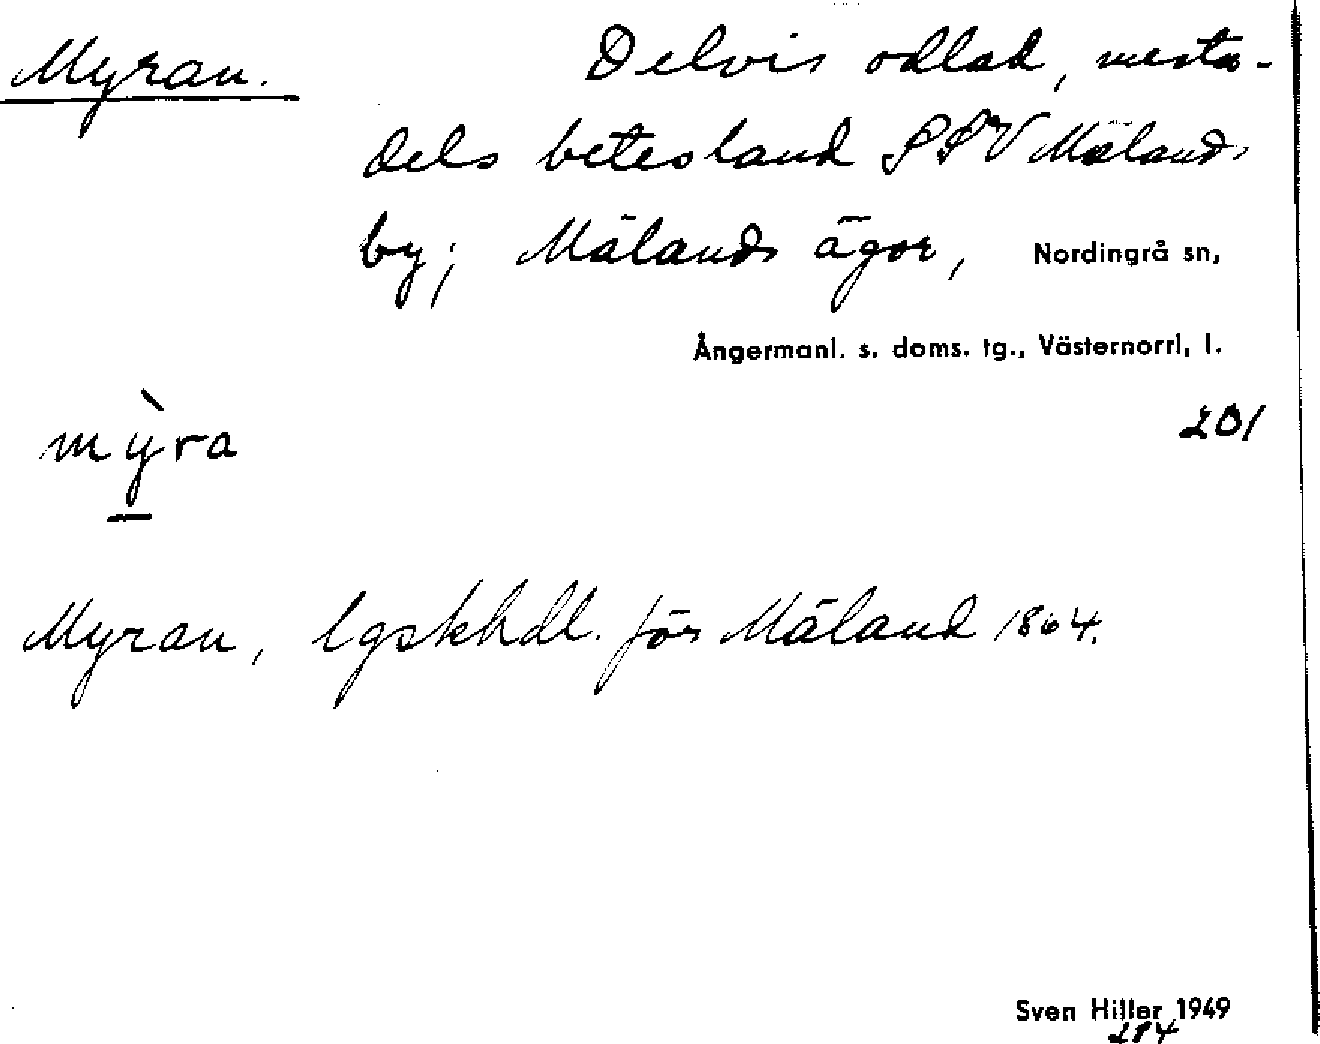 Myran. Delvis odlad, mesta-
dels betesland SSV Mälands
by; Mälands ägor, Nordingrå sn,
Ångermanl. s. doms. tg., Västernorrl. l.
201
mỳra
Myran, lgskhdl. för Mäland 1864.
Sven Hiller 1949
284